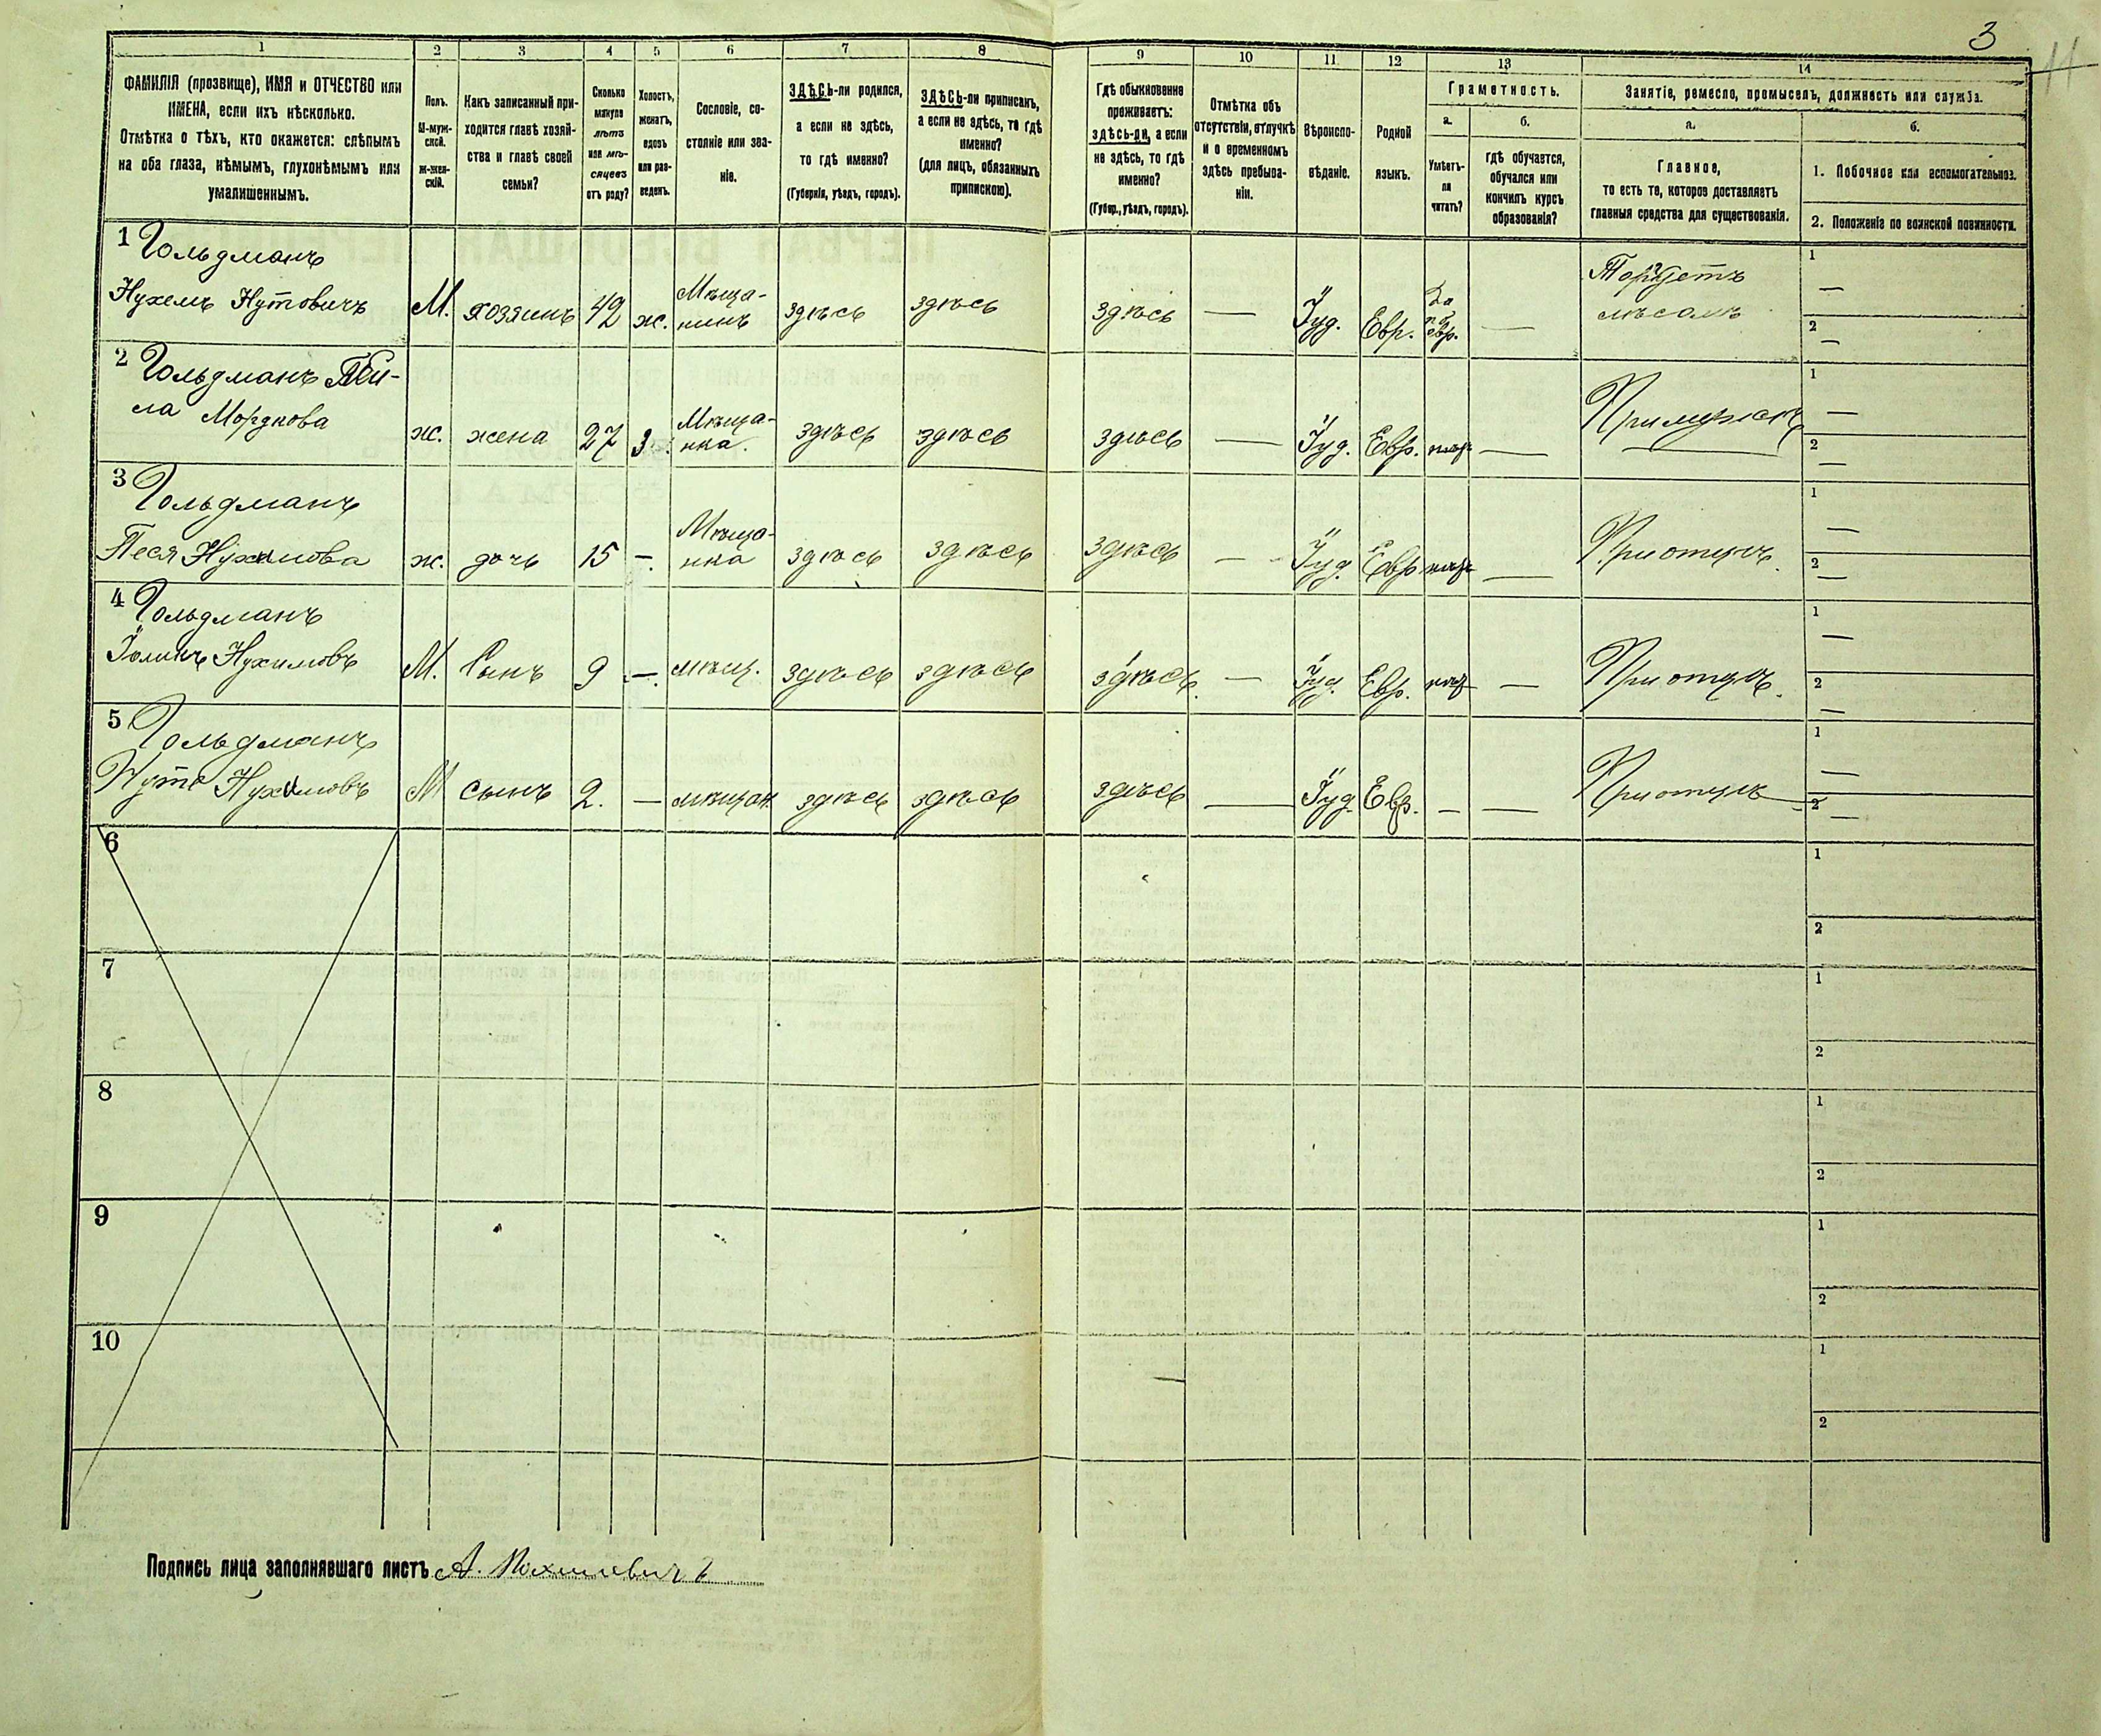 3
11
1
ФАМИЛІЯ (прозвище), ИМЯ и ОТЧЕСТВО или
ИМЕНА, если ихъ нѣсколько.
Отмѣтка о тѣхъ, кто окажется: слѣпымъ
на оба глаза, нѣмымъ, глухонѣмымъ или
умалишеннымъ.
2
Полъ.
М-муж-
ской.
Ж-жен-
скій.
3
Какъ записанный при-
ходится главѣ хозяй-
ства и главѣ своей
семьи?
4
Сколько
минуло
лѣтъ
или мѣ-
сяцевъ
отъ роду?
5
Холостъ,
женатъ,
вдовъ
или раз-
веденъ.
6
Сословіе, со-
стояніе или зва-
ніе.
7
ЗДѢСЬ-ли родился,
а если не здѣсь,
то гдѣ именно?
(Губернія, уѣздъ, городъ).
8
ЗДѢСЬ-ли приписанъ,
а если не здѣсь, то гдѣ
именно?
(для лицъ, обязанныхъ
припискою).
9
Гдѣ обыкновенно
проживаетъ:
здѣсь-ли, а если
не здѣсь, то гдѣ
именно?
(Губер., уѣздъ, городъ).
10
Отмѣтка объ
отсутствіи, отлучкѣ
и о временномъ
здѣсь пребыва-
ніи.
11
Вѣроиспо-
вѣданіе.
12
Родной
языкъ.
13
Грамотность.
а.
Умѣетъ-
ли
читать?
б.
гдѣ обучается,
обучался или
кончилъ курсъ
образованія?
14
Занятіе, ремесло, промыселъ, должность или служба.
а.
Главное,
то есть то, которое доставляетъ
главныя средства для существованія.
б.
1. Побочное или вспомогательное.
2. Положеніе по воинской повинности.
1 Гольдманъ
Нухемъ Нутовичъ
М. хозяинъ 42 ж. Мѣща-
нинъ
здѣсь здѣсь здѣсь — Іуд. Евр. Да
евр. —
Торгуетъ
1 —
2 —
2 Гольдманъ
Мордкова
ж. жена 27 з. Мѣща-
нка.
здѣсь здѣсь здѣсь — Іуд. Евр. —
При мужѣ
1 —
2 —
3 Гольдманъ
Песя Нухимова
ж. дочь 15 —. Мѣща-
нка
здѣсь здѣсь здѣсь — Іуд. Евр —
При отцѣ.
1 —
2 —
4 Гольдманъ
Нухимовъ
М. Сынъ 9 —. мѣщ. здѣсь здѣсь здѣсь. — Іуд. Евр. —
При отцѣ.
1 —
2 —
5 Гольдманъ
Нута Нухимовъ
М сынъ 2. — мѣщан. здѣсь здѣсь здѣсь — Іуд. Евр. — —
При отцѣ
1 —
2 —
6
1
2
7
1
2
8
1
2
9
1
2
10
1
2
Подпись лица заполнявшаго листъ А.